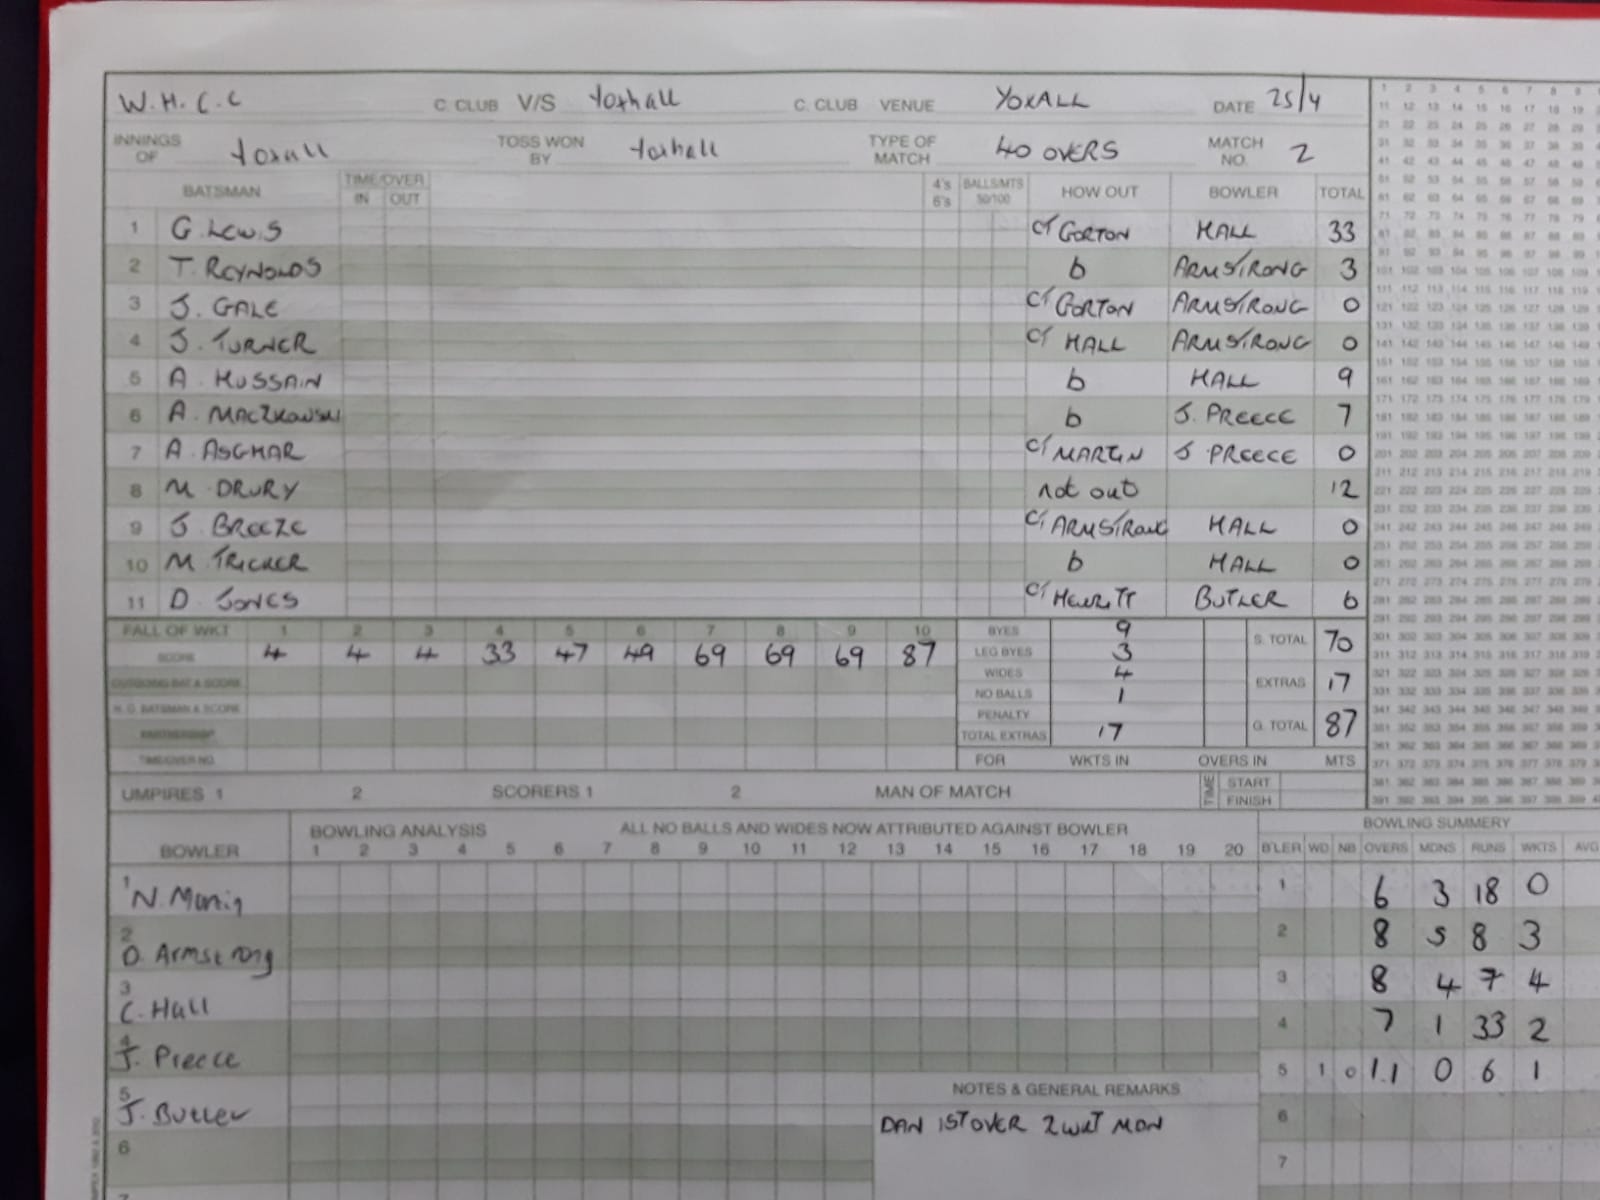 W.H.C.C C. CLUB V/S Yoxhall C. CLUB VENUE YOXALL DATE 25/4
INNINGS OF Yoxall TOSS WON BY Yoxhall TYPE OF MATCH 40 OVERS MATCH NO. 2
BATSMAN TIME/OVER IN OUT 4's 6's BALLS/MTS 50/100 HOW OUT BOWLER TOTAL
1 G. LEWIS CT GORTON HALL 33
2 T. REYNOLDS b ARMSTRONG 3
3 J. GALE CT GORTON ARMSTRONG 0
4 J. TURNER CT HALL ARMSTRONG 0
5 A. HUSSAIN b HALL 9
6 A. MACZKOWSKI b J. PREECE 7
7 A ASGHAR CT MARTIN J PREECE 0
8 M DRURY not out 12
9 J. BREEZE CT ARMSTRONG HALL 0
10 M TRICKER b HALL 0
11 D. JONES CT HEWITT BUTLER 6
FALL OF WKT 1 2 3 4 5 6 7 8 9 10
SCORE 4 4 4 33 47 49 69 69 69 87
OUTGOING BAT & SCORE
N. O. BATSMAN & SCORE
PARTNERSHIP
TIME/OVER NO.
BYES 9 S. TOTAL 70
LEG BYES 3
WIDES 4 EXTRAS 17
NO BALLS 1
PENALTY G. TOTAL 87
TOTAL EXTRAS 17
FOR WKTS IN OVERS IN MTS
UMPIRES 1 2 SCORERS 1 2 MAN OF MATCH TIME START FINISH
BOWLER BOWLING ANALYSIS ALL NO BALLS AND WIDES NOW ATTRIBUTED AGAINST BOWLER BOWLING SUMMERY
1 2 3 4 5 6 7 8 9 10 11 12 13 14 15 16 17 18 19 20 B'LER WD NB OVERS MDNS RUNS WKTS AVG
1 N. 1 6 3 18 0
2 D. Armstrong 2 8 5 8 3
3 C. Hall 3 8 4 7 4
4 J. Preece 4 7 1 33 2
5 J. Butler 5 1 0 1.1 0 6 1
NOTES & GENERAL REMARKS
DAN 1ST OVER 2 WKT MDN
6 6
7 7